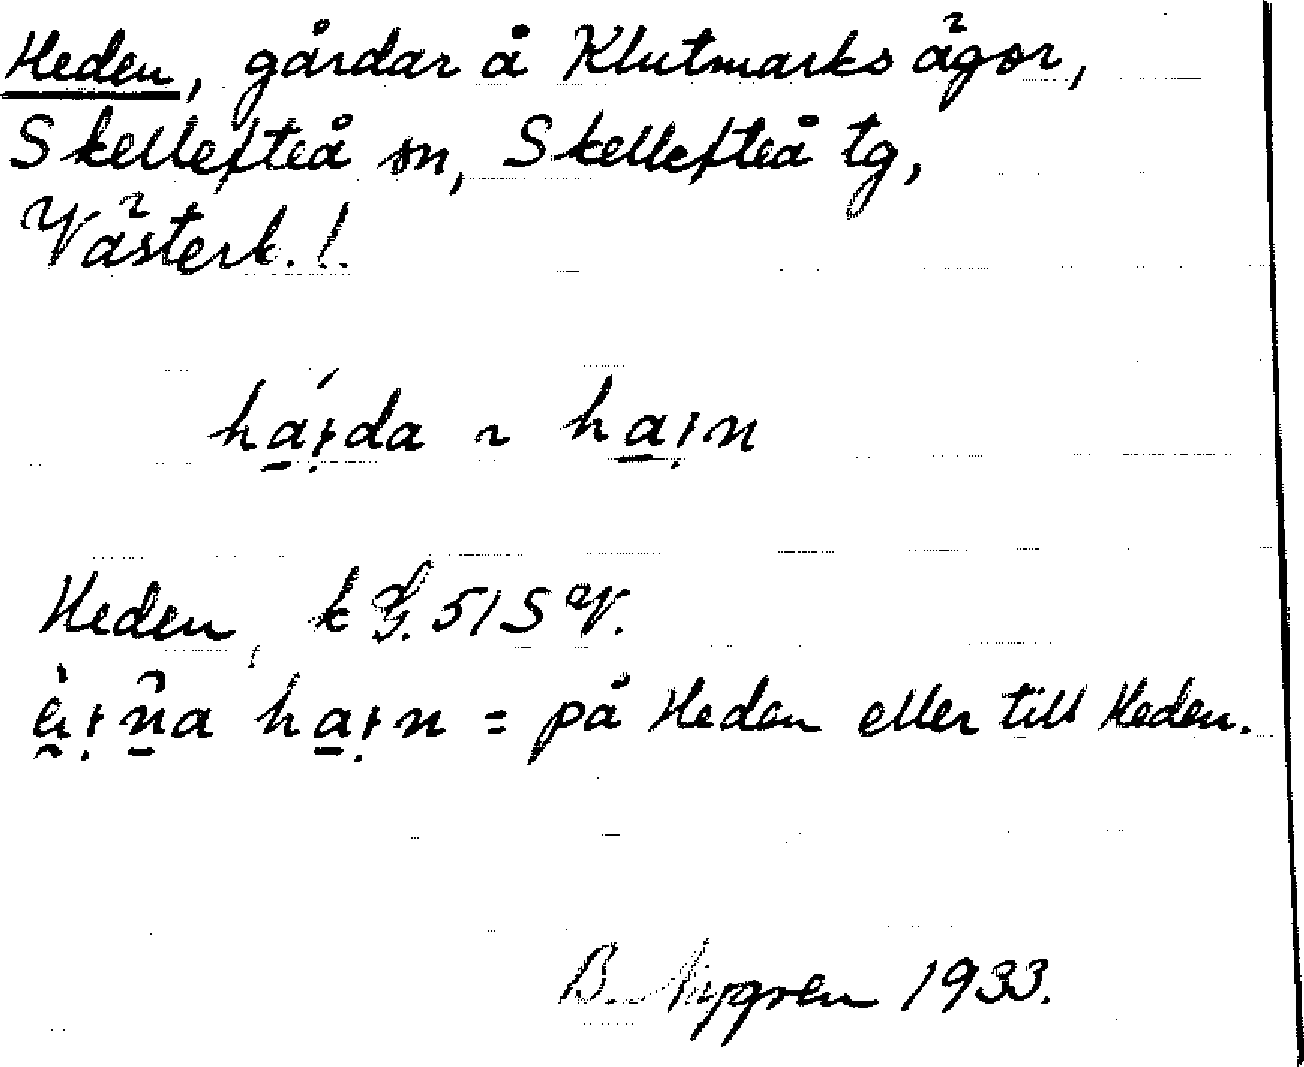 Heden, gårdar å Klutmarks ägor,
Skellefteå sn, Skellefteå tg,
Västerb. l.
ha̱ịda ~ ha̱ịn
Heden, k G. 51 SV.
ha̱ịn = på Heden eller till Heden.
B. Nygren 1933.